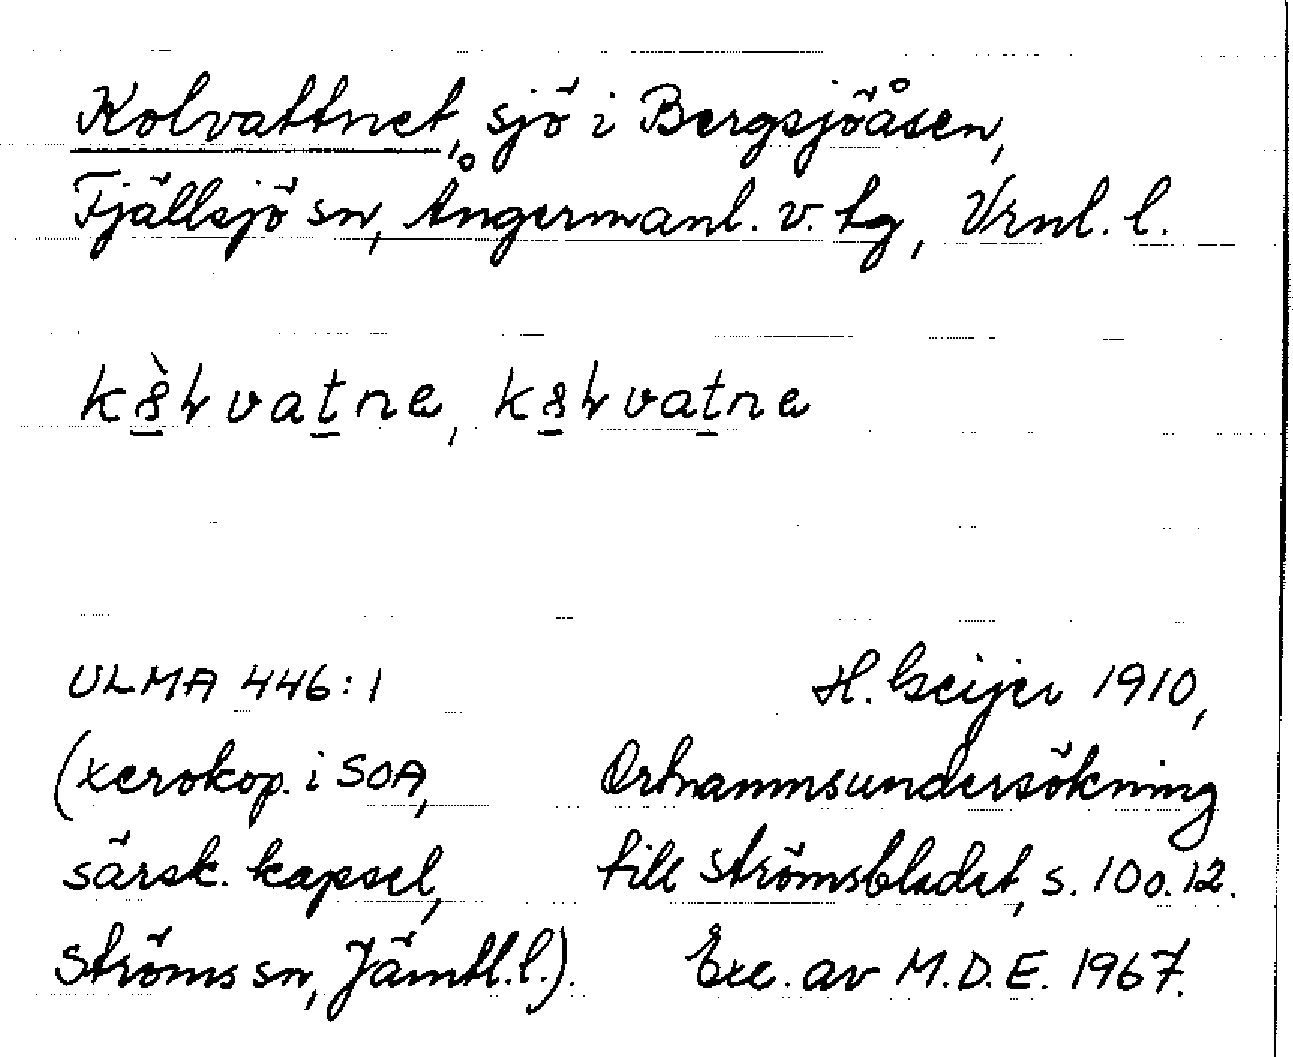 Kolvattnet, sjö i Bergsjöåsen,
Fjällsjö sn, Ångermanl. v. tg, Vrnl. l.
ULMA 446:1 H. Geijer 1910,
(xerokop. i SOA, Ortnammsundersökning
särsk. kapsel, till Strömsbladet, s. 10 o. 12.
Ströms sn, Jämtl. l.). Exc. av M.D.E. 1967.